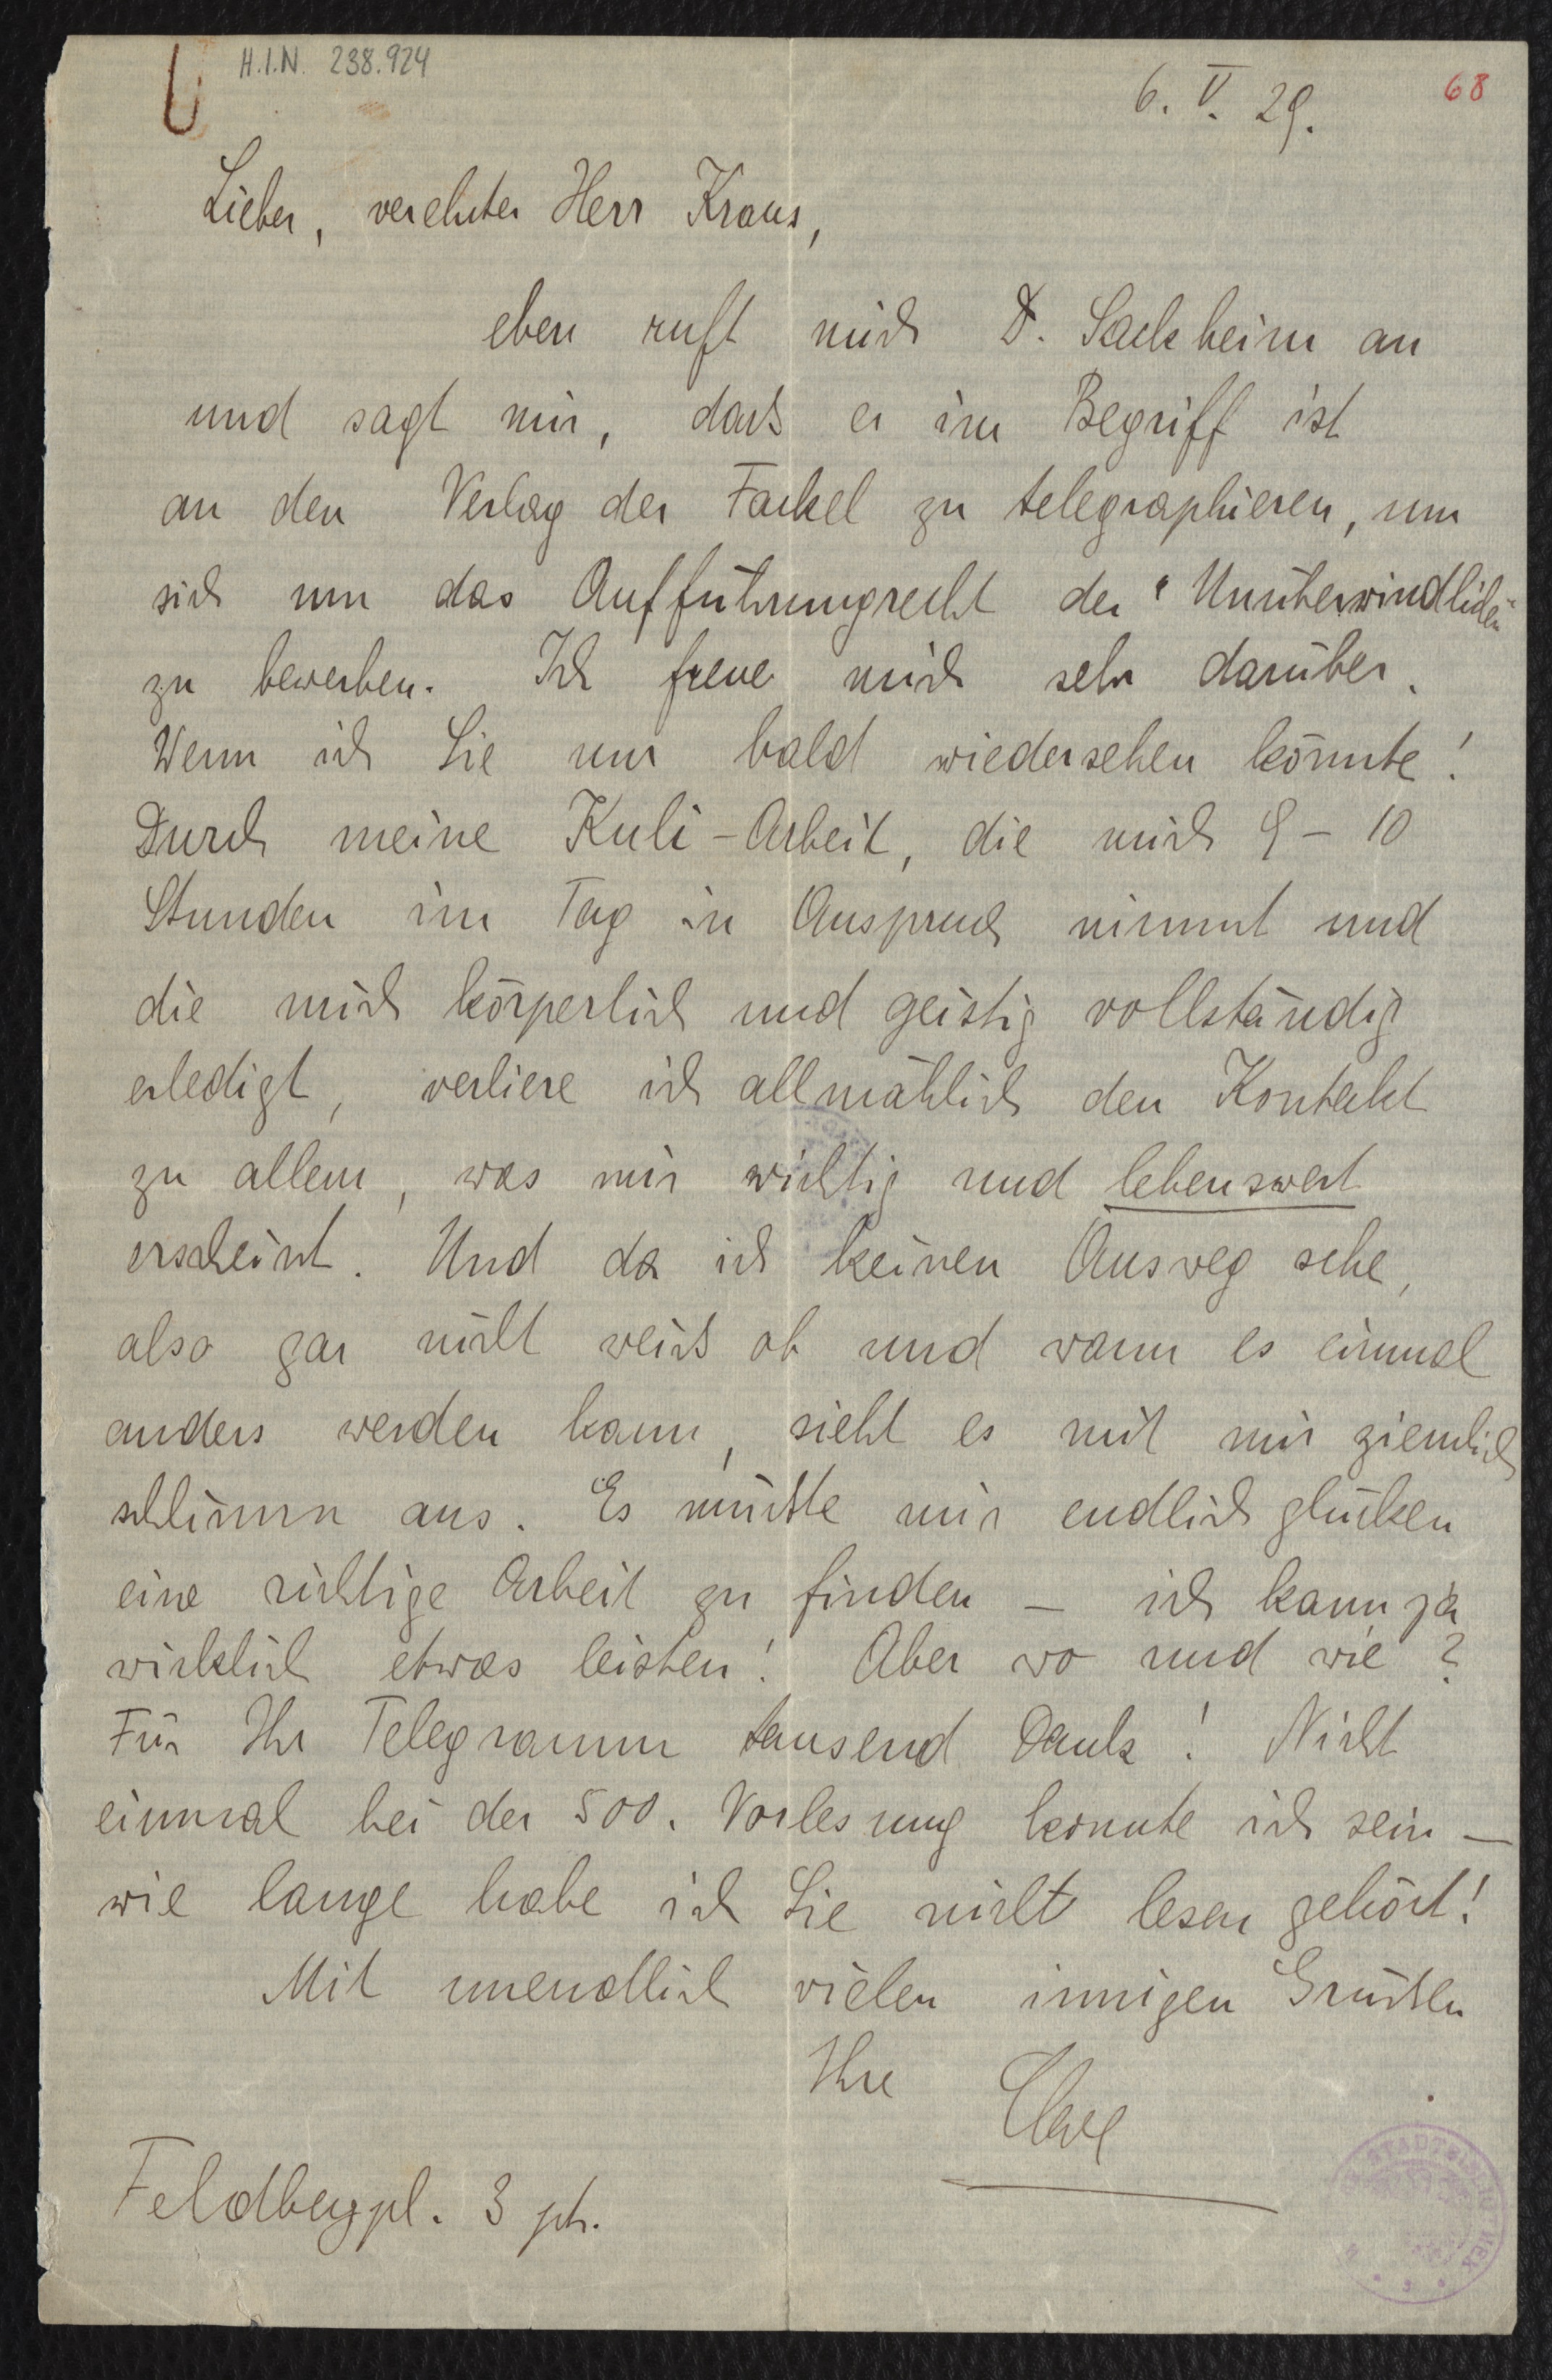 H.I.N. 238.924
6. V. 29.
68
Lieber, verehrter Herr Kraus,
eben ruft mich D. Sackheim an
und sagt mir, dass er im Begriff ist
an den Verlag der Fackel zu telegraphieren, um
sich um das Aufführungrecht der "Unüberwindlichen"
zu bewerben. Ich freue mich sehr darüber.
Wenn ich Sie nur bald wiedersehen könnte!
Durch meine Kuli-Arbeit, die mich 9 – 10
Stunden im Tag in Anspruch nimmt und
die mich körperlich und geistig vollständig
erledigt, verliere ich allmählich den Kontakt
zu allem, was mir wichtig und lebenswert
erscheint. Und da ich keinen Ausweg sehe,
also gar nicht weiss ob und wann es einmal
anders werden kann, sieht es mit mir ziemlich
schlimm aus. Es müsste mir endlich glücken
eine richtige Arbeit zu finden – ich kann ja
wirklich etwas leisten! Aber wo und wie?
Für Ihr Telegramm tausend Dank! Nicht
einmal bei der 500. Vorlesung konnte ich sein –
wie lange habe ich Sie nicht lesen gehört!
Mit unendlich vielen innigen Grüssen
Ihre
Feldbergpl. 3 ptr.